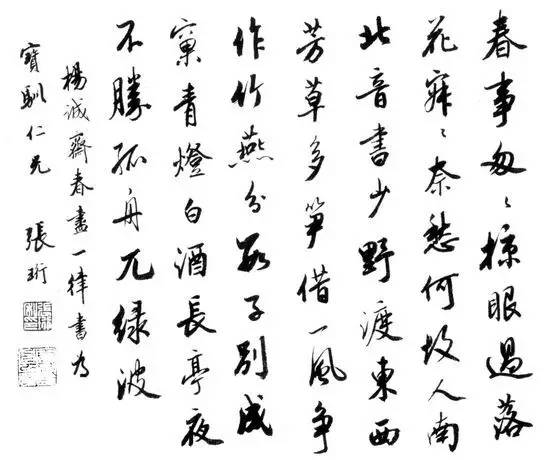 春事匆々掠眼過落
花寂々奈愁何故人南
北音書少野渡東西
芳草多笋借一風争
作竹燕分數子別成
窠青燈白酒長亭夜
不勝孤舟兀緑波
楊誠齋春盡一律書為
寶馴仁兄 張珩